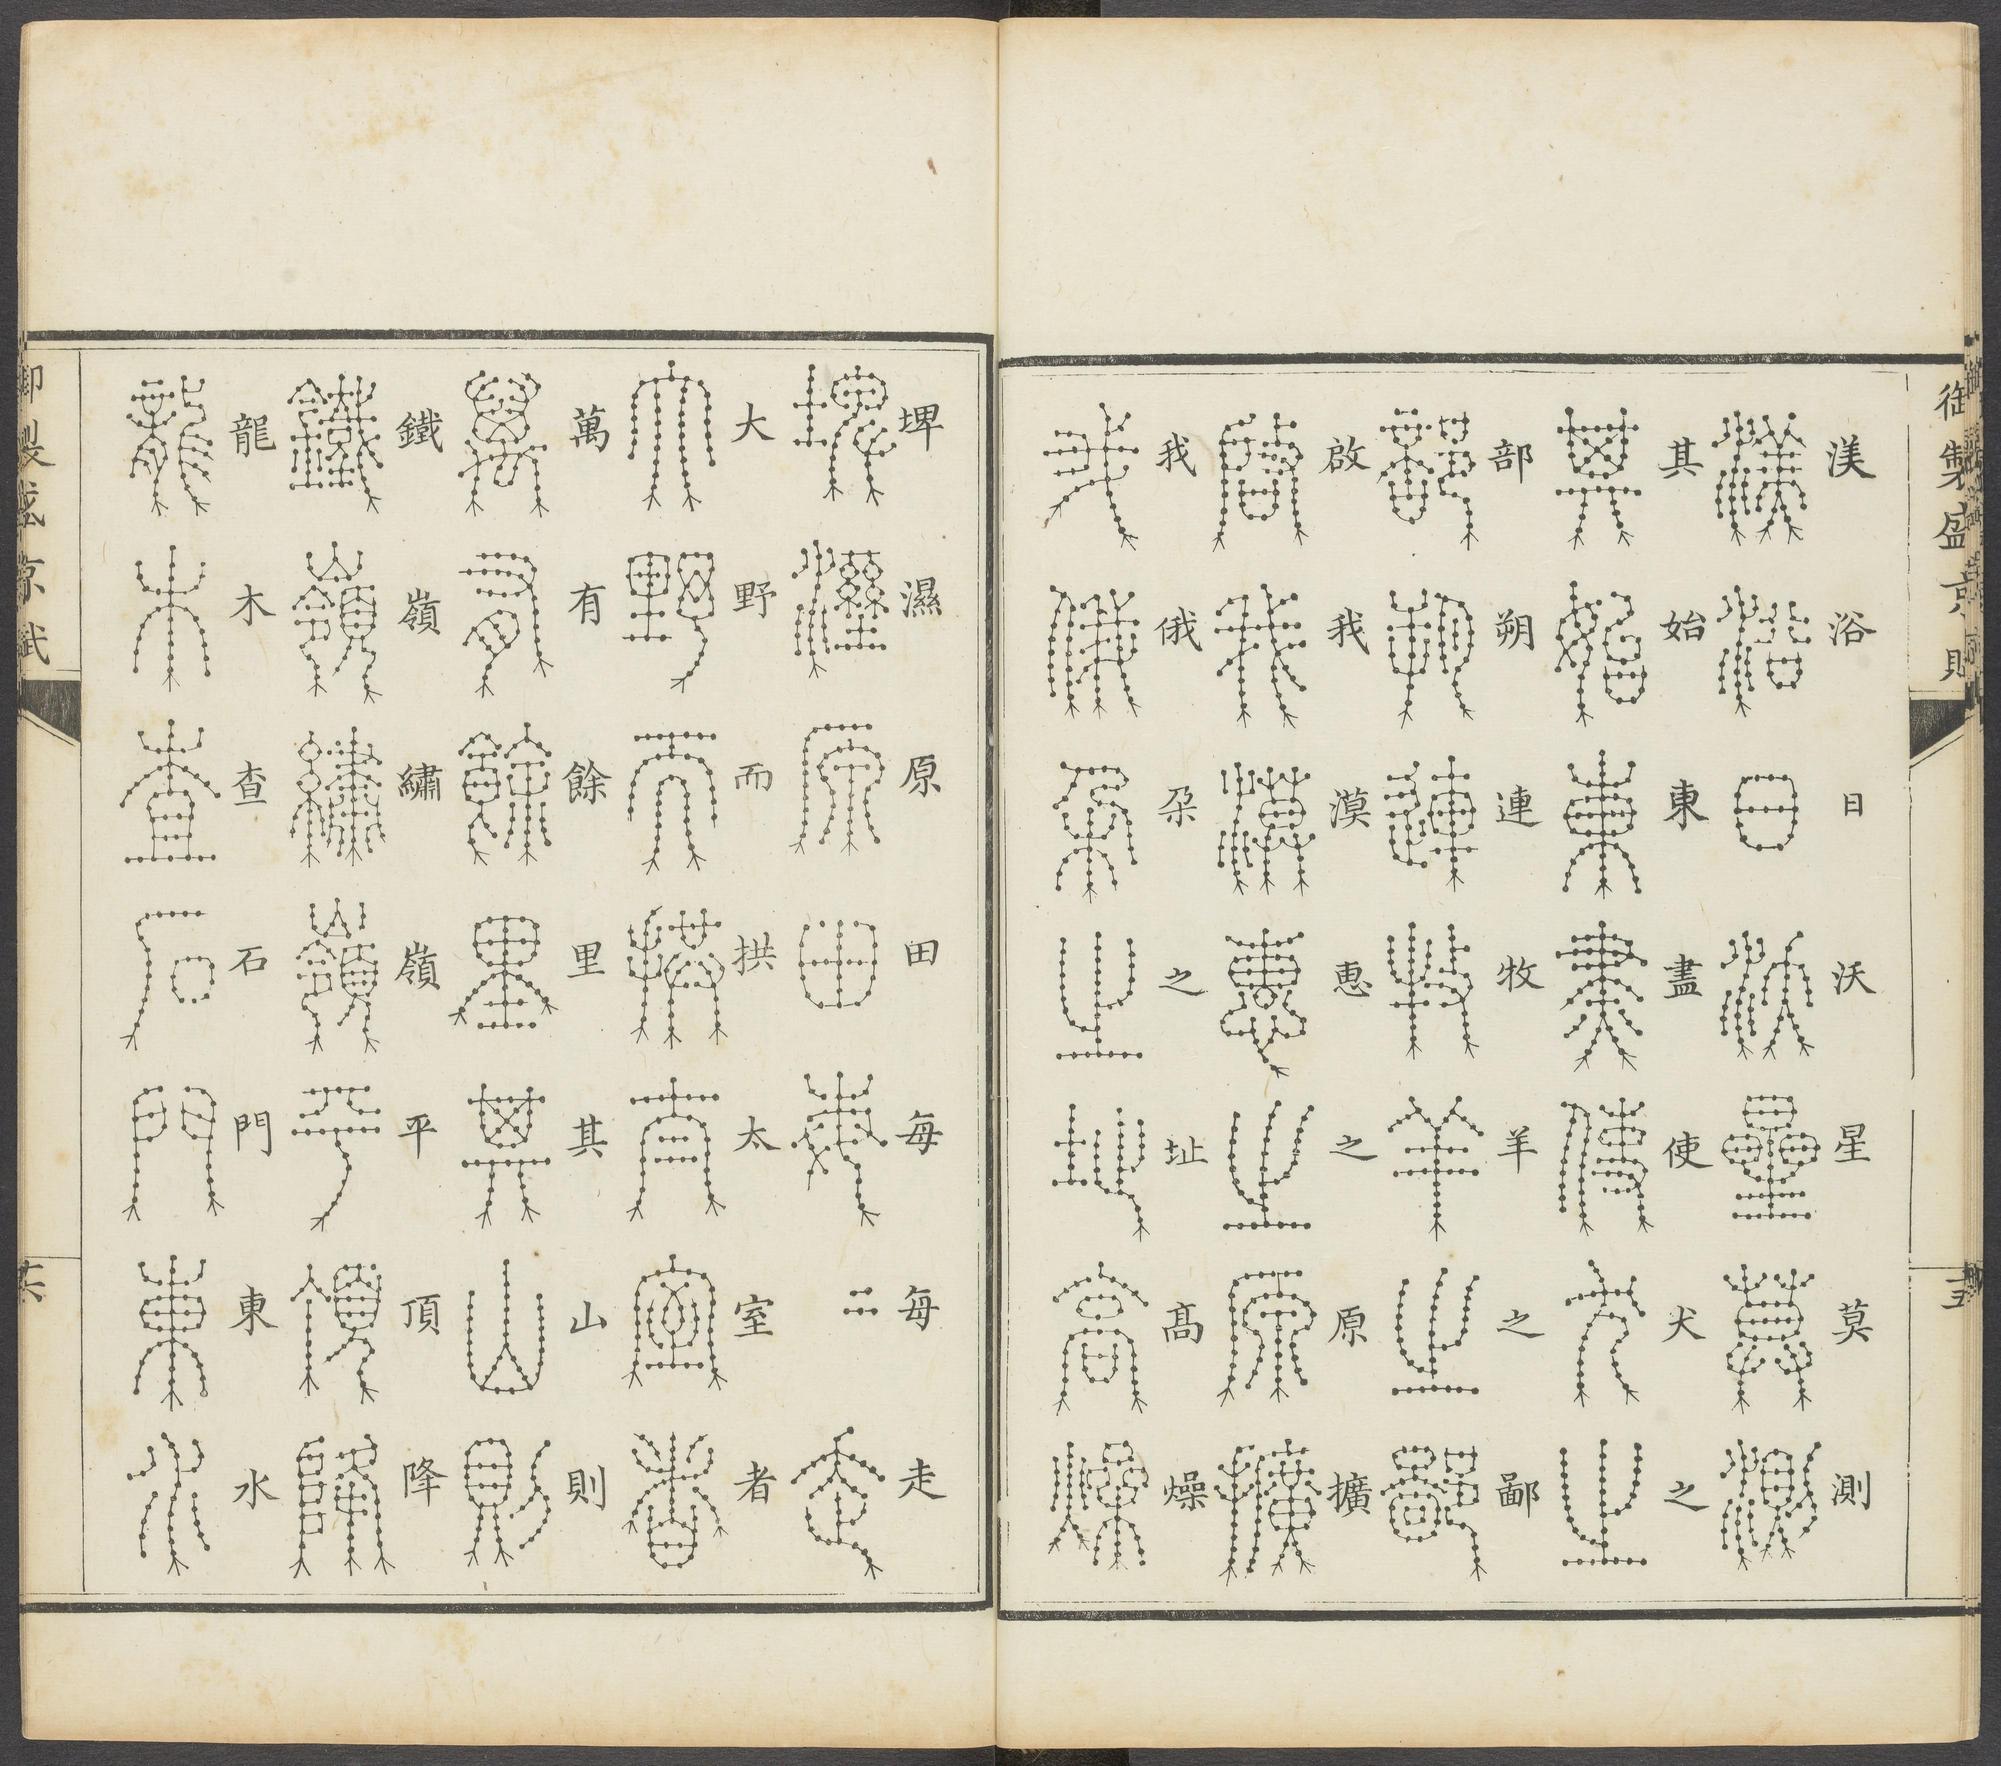 御製盛京賦
渼浴日沃星莫測
其始東盡使犬之
部朔連牧羊之鄙
啟我漠惠之原擴
我俄朶之址高燥
五
埤濕原田每每走
大野而拱太室者
萬有餘里其山則
鐵嶺繡嶺平頂降
龍木查石門東水
御製盛京賦
六